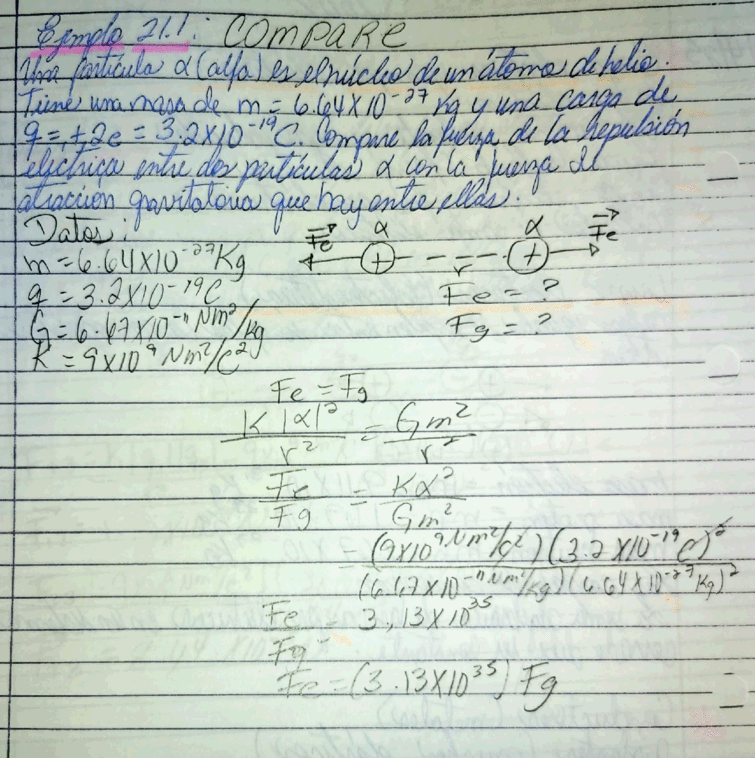 Ejemplo 21.1: COMPARE
Una partícula α (alfa) es el núcleo de un átomo de helio.
Tiene una masa de m = 6.64X10⁻²⁷ Kg y una carga de
q = +2e = 3.2X10⁻¹⁹C. Compare la fuerza de la repulsión
eléctrica entre dos partículas α con la fuerza de
atracción gravitatoria que hay entre ellas.
Datos:
m = 6.64X10⁻²⁷Kg
q = 3.2X10⁻¹⁹C
G = 6.67X10⁻¹¹ Nm²/Kg
K = 9X10⁹ Nm²/C²
Fe α r α Fe
Fe = ?
Fg = ?
Fe = Fg
K|α|²/r² = Gm²/r²
Fe/Fg = Kα²/Gm²
(9X10⁹ Nm²/C²)(3.2X10⁻¹⁹C)²
(6.67X10⁻¹¹ Nm²/Kg)(6.64X10⁻²⁷Kg)²
Fe/Fg = 3.13X10³⁵
Fe = (3.13X10³⁵) Fg